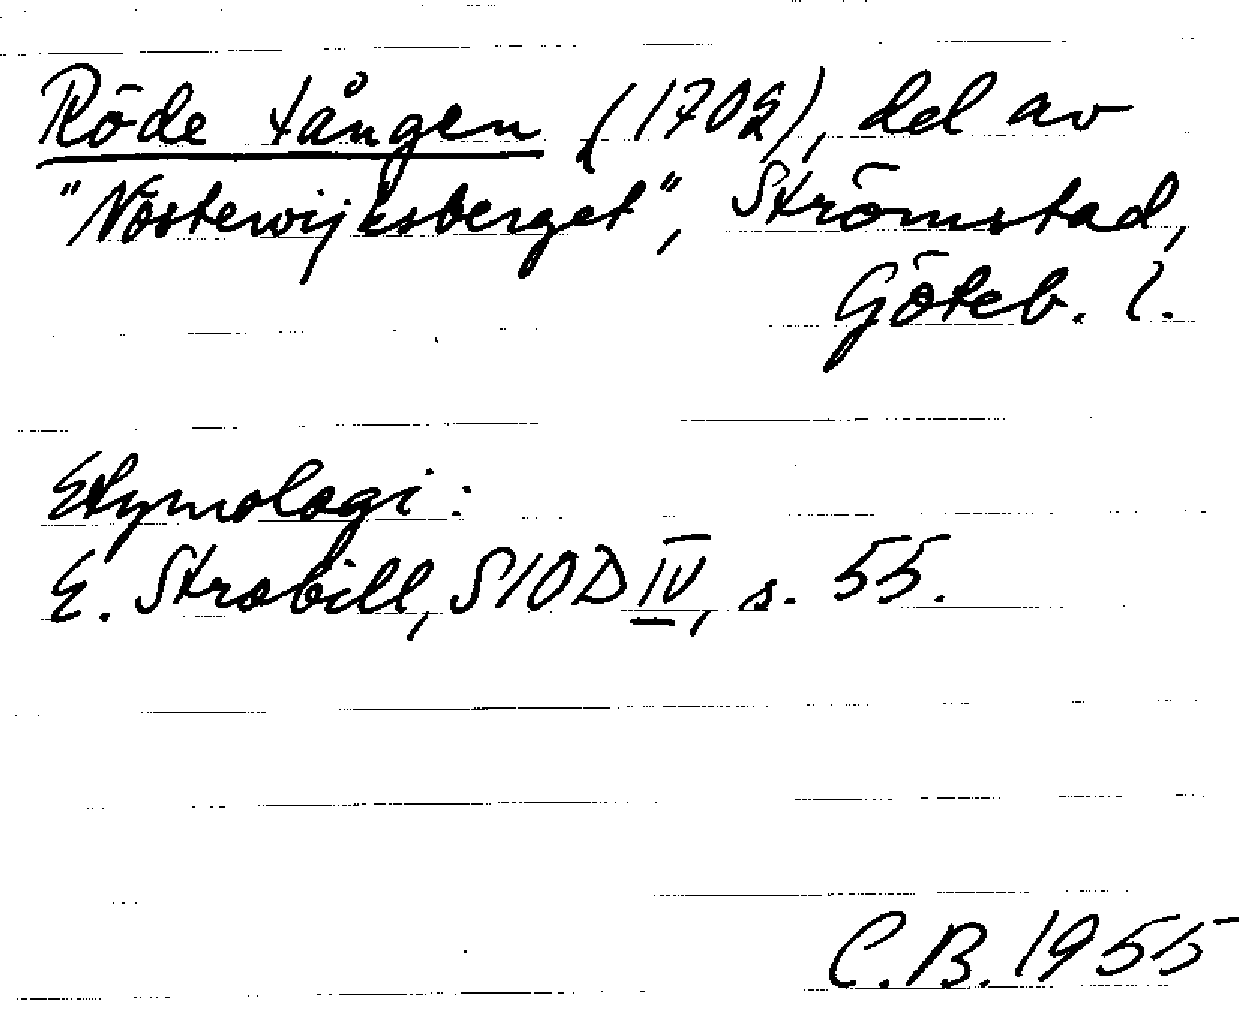 Röde tången (1702), del av
"Nöstewijksberget", Strömstad,
Göteb. l.
Etymologi:
E. Strobill, SIOD IV, s. 55.
C.B. 1955